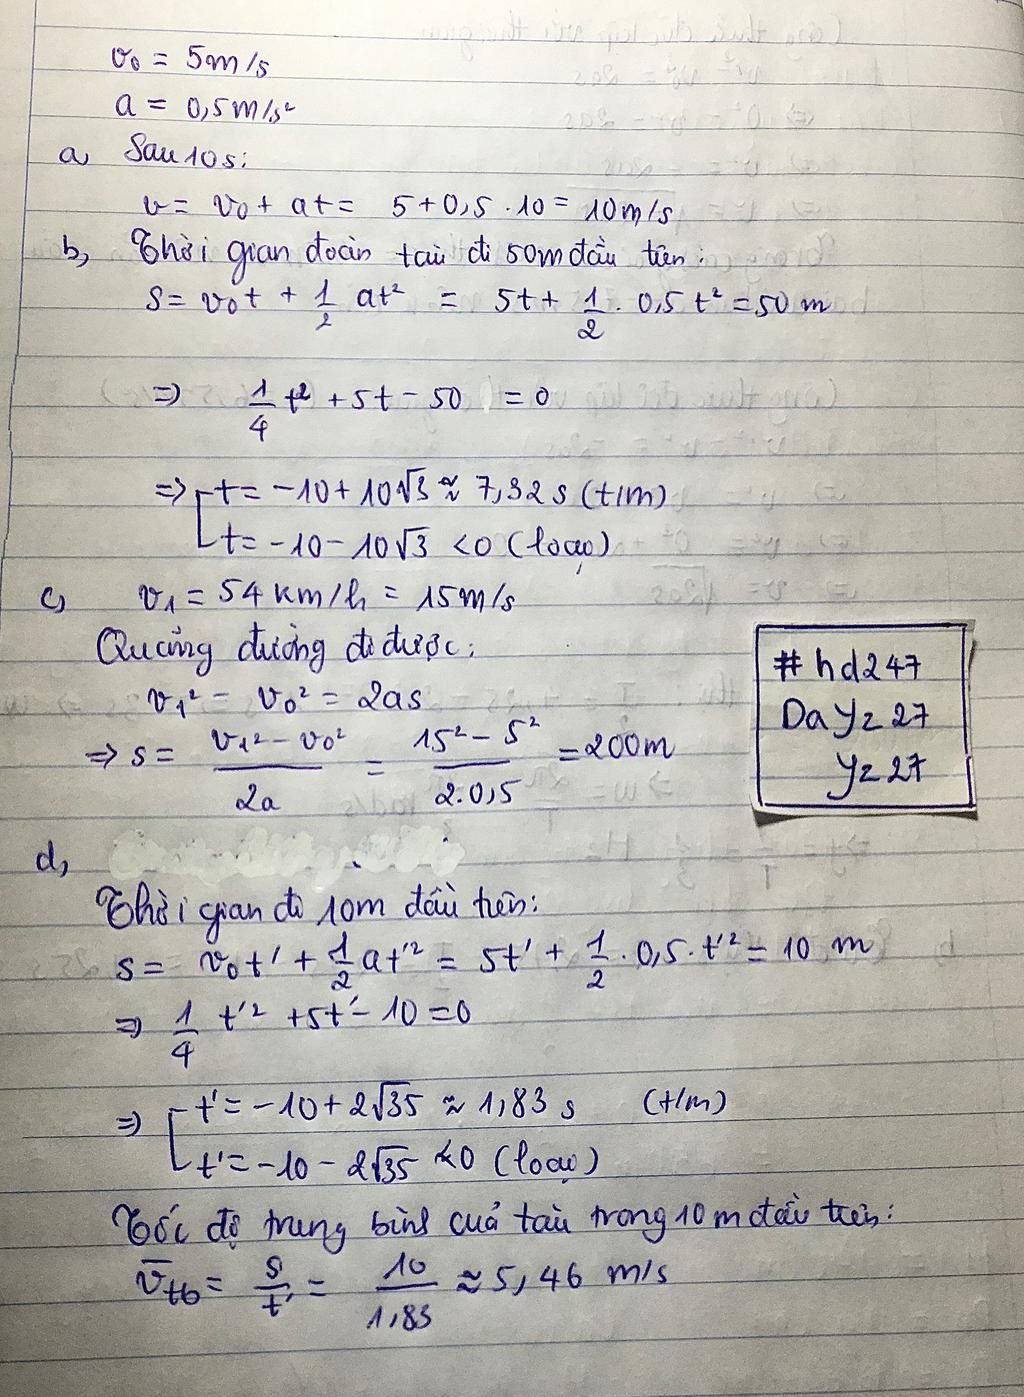 v₀ = 5m/s
a = 0,5m/s²
a, Sau 10s:
v = v₀ + at = 5 + 0,5 . 10 = 10m/s
b, Thời gian đoàn tàu đi 50m đầu tiên:
s = v₀t + 1/2 at² = 5t + 1/2 . 0,5 t² = 50 m
⇒ 1/4 t² + 5t - 50 = 0
⇒ [ t = -10 + 10√3 ≈ 7,32 s (t/m)
t = -10 - 10√3 < 0 (loại)
c, v₁ = 54 km/h = 15m/s
Quãng đường đi được:
v₁² - v₀² = 2as
⇒ s = (v₁² - v₀²)/2a = (15² - 5²)/2.0,5 = 200m
#hd247
DaYz27
Yz27
d,
Thời gian đi 10m đầu tiên:
s = v₀t' + 1/2 at'² = 5t' + 1/2 . 0,5 . t'² = 10 m
⇒ 1/4 t'² + 5t' - 10 = 0
⇒ [ t' = -10 + 2√35 ≈ 1,83 s (t/m)
t' = -10 - 2√35 < 0 (loại)
Tốc độ trung bình của tàu trong 10m đầu tiên:
v̄tb = s/t' = 10/1,83 ≈ 5,46 m/s